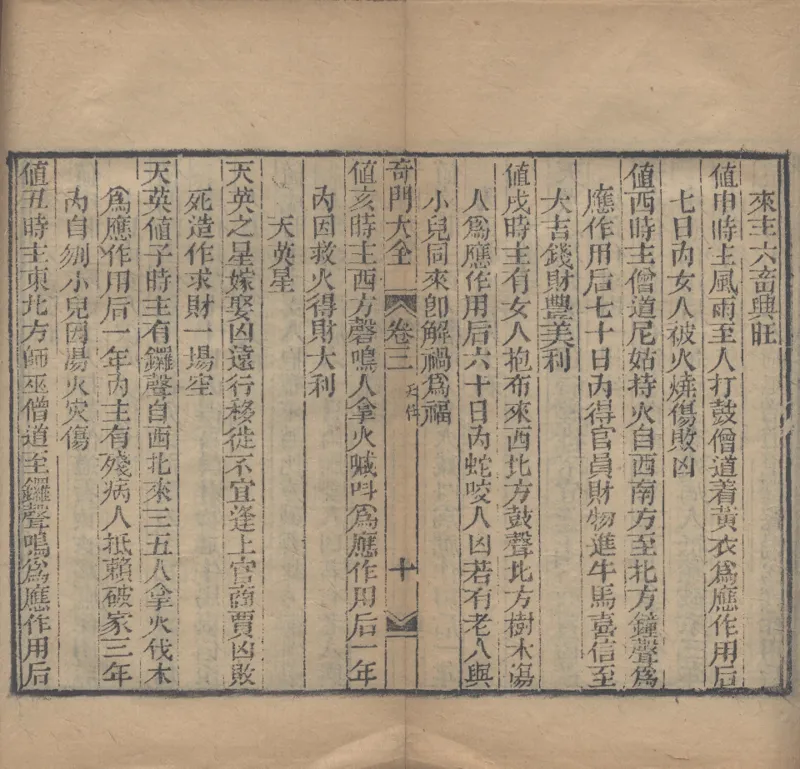 來主六畜興旺
值申時主風雨至人打鼓僧道着黃衣爲應作用后
七日內女人被火燒傷敗凶
值酉時主僧道尼姑持火自西南方至北方鐘聲爲
應作用后七十日內得官員財物進牛馬喜信至
大吉錢財豐美利
值戌時主有女人抱布來西北方鼓聲北方樹木湯
人爲應作用后六十日內蛇咬人凶若有老人與
小兒同來卽解禍爲福
奇門大全 卷三 十
值亥時主西方磬鳴人拿火喊呌爲應作用后一年
內因救火得財大利
天英星
天英之星嫁娶凶遠行移徙不宜逢上官商賈凶敗
死造作求財一場空
天英值子時主有鑼聲自西北來三五人拿火伐木
爲應作用后一年內主有殘病人抵賴破家三年
內自刎小兒因湯火灾傷
值丑時主東北方師巫僧道至鑼聲鳴爲應作用后